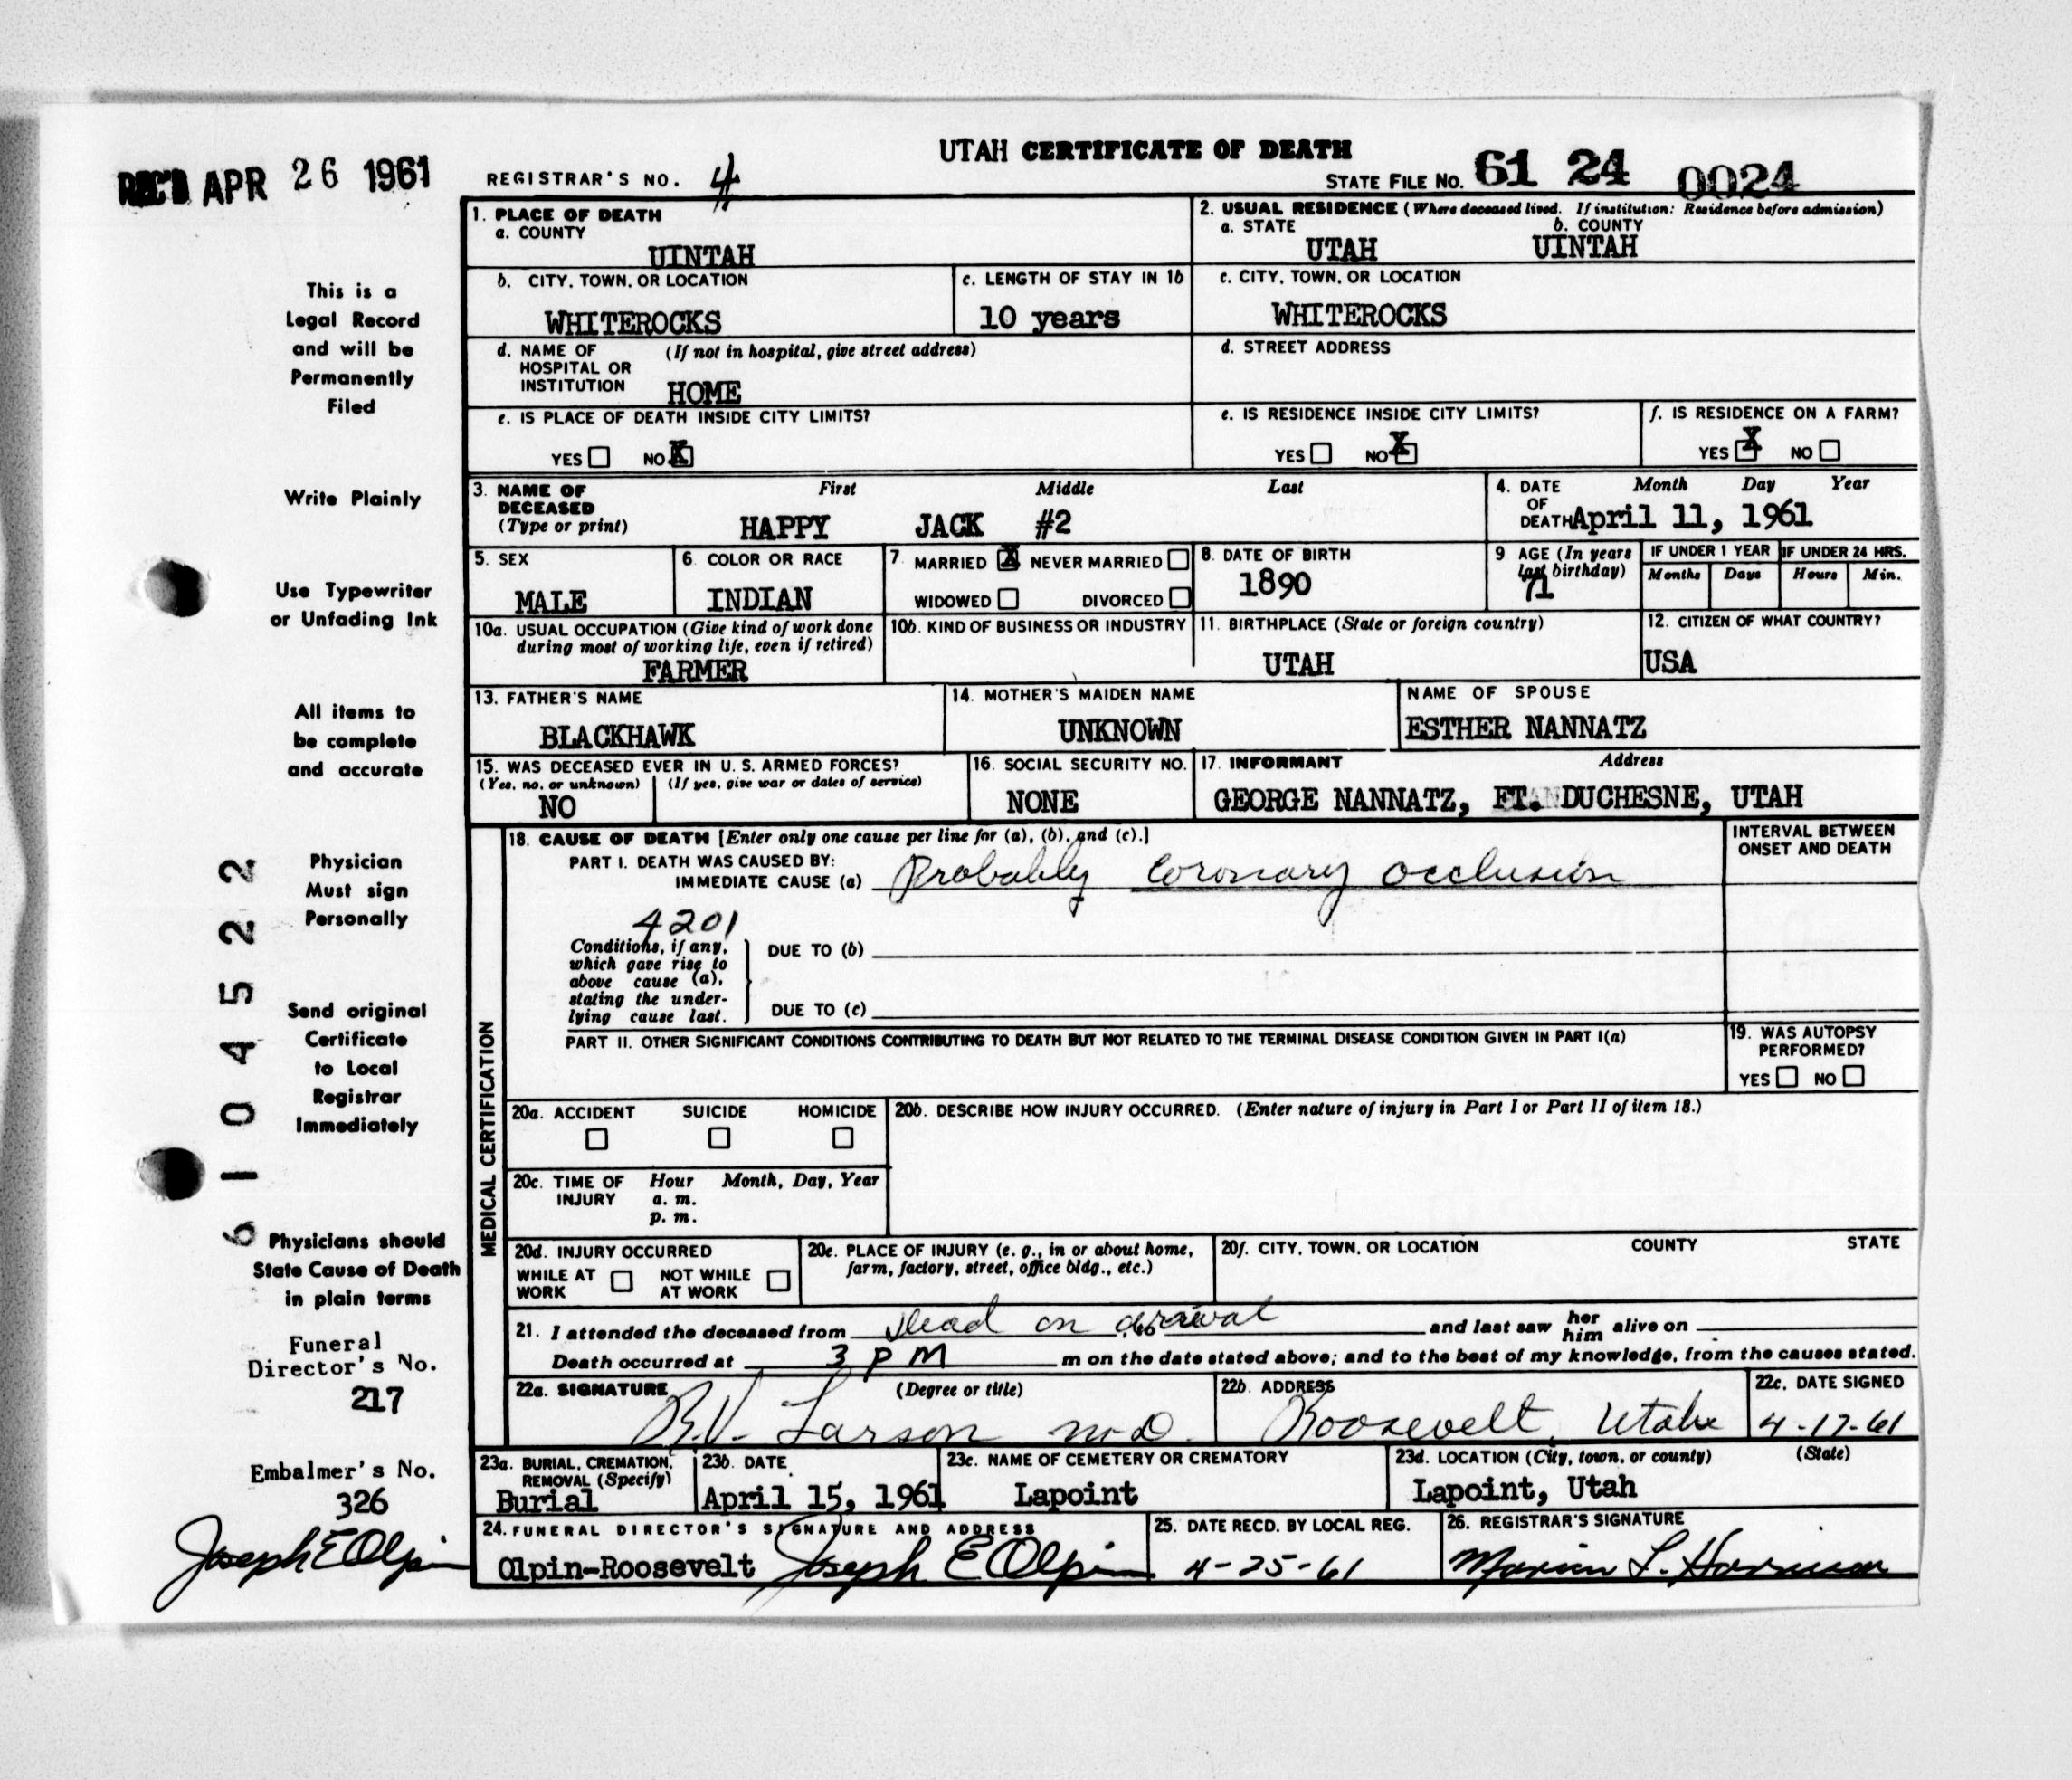 UTAH CERTIFICATE OF DEATH
REC'D APR 26 1961
REGISTRAR'S NO. 4
STATE FILE NO. 61 24 0024
1. PLACE OF DEATH
a. COUNTY
UINTAH
2. USUAL RESIDENCE (Where deceased lived. If institution: Residence before admission)
a. STATE b. COUNTY
UTAH UINTAH
b. CITY, TOWN, OR LOCATION
WHITEROCKS
c. LENGTH OF STAY IN 1b
10 years
c. CITY, TOWN, OR LOCATION
WHITEROCKS
d. NAME OF (If not in hospital, give street address)
HOSPITAL OR
INSTITUTION HOME
d. STREET ADDRESS
e. IS PLACE OF DEATH INSIDE CITY LIMITS?
YES NO X
e. IS RESIDENCE INSIDE CITY LIMITS?
YES NO X
f. IS RESIDENCE ON A FARM?
YES X NO
3. NAME OF First Middle Last
DECEASED
(Type or print) HAPPY JACK #2
4. DATE Month Day Year
OF
DEATH April 11, 1961
5. SEX
MALE
6. COLOR OR RACE
INDIAN
7. MARRIED X NEVER MARRIED
WIDOWED DIVORCED
8. DATE OF BIRTH
1890
9 AGE (In years
last birthday)
71
IF UNDER 1 YEAR IF UNDER 24 HRS.
Months Days Hours Min.
10a. USUAL OCCUPATION (Give kind of work done
during most of working life, even if retired)
FARMER
10b. KIND OF BUSINESS OR INDUSTRY
11. BIRTHPLACE (State or foreign country)
UTAH
12. CITIZEN OF WHAT COUNTRY?
USA
13. FATHER'S NAME
BLACKHAWK
14. MOTHER'S MAIDEN NAME
UNKNOWN
NAME OF SPOUSE
ESTHER NANNATZ
15. WAS DECEASED EVER IN U. S. ARMED FORCES?
(Yes, no, or unknown) (If yes, give war or dates of service)
NO
16. SOCIAL SECURITY NO.
NONE
17. INFORMANT Address
GEORGE NANNATZ, FT. DUCHESNE, UTAH
MEDICAL CERTIFICATION
18. CAUSE OF DEATH [Enter only one cause per line for (a), (b), and (c).]
PART I. DEATH WAS CAUSED BY:
IMMEDIATE CAUSE (a) Probably coronary occlusion
INTERVAL BETWEEN
ONSET AND DEATH
4201
Conditions, if any,
which gave rise to
above cause (a),
stating the under-
lying cause last.
DUE TO (b)
DUE TO (c)
PART II. OTHER SIGNIFICANT CONDITIONS CONTRIBUTING TO DEATH BUT NOT RELATED TO THE TERMINAL DISEASE CONDITION GIVEN IN PART I(a)
19. WAS AUTOPSY
PERFORMED?
YES NO
20a. ACCIDENT SUICIDE HOMICIDE
20b. DESCRIBE HOW INJURY OCCURRED. (Enter nature of injury in Part I or Part II of item 18.)
20c. TIME OF Hour Month, Day, Year
INJURY a. m.
p. m.
20d. INJURY OCCURRED
WHILE AT NOT WHILE
WORK AT WORK
20e. PLACE OF INJURY (e. g., in or about home,
farm, factory, street, office bldg., etc.)
20f. CITY, TOWN, OR LOCATION COUNTY STATE
21. I attended the deceased from Dead on arrival to and last saw her him alive on
Death occurred at 3 P M m on the date stated above; and to the best of my knowledge, from the causes stated.
22a. SIGNATURE (Degree or title)
R.V. Larson M.D.
22b. ADDRESS
Roosevelt, Utah
22c. DATE SIGNED
4-17-61
23a. BURIAL, CREMATION,
REMOVAL (Specify)
Burial
23b. DATE
April 15, 1961
23c. NAME OF CEMETERY OR CREMATORY
Lapoint
23d. LOCATION (City, town, or county) (State)
Lapoint, Utah
24. FUNERAL DIRECTOR'S SIGNATURE AND ADDRESS
Olpin-Roosevelt Joseph E Olpin
25. DATE RECD. BY LOCAL REG.
4-25-61
26. REGISTRAR'S SIGNATURE
Marion L. Harrison
This is a
Legal Record
and will be
Permanently
Filed
Write Plainly
Use Typewriter
or Unfading Ink
All items to
be complete
and accurate
Physician
Must sign
Personally
Send original
Certificate
to Local
Registrar
Immediately
Physicians should
State Cause of Death
in plain terms
Funeral
Director's No.
217
Embalmer's No.
326
Joseph E Olpin
6 1 0 4 5 2 2